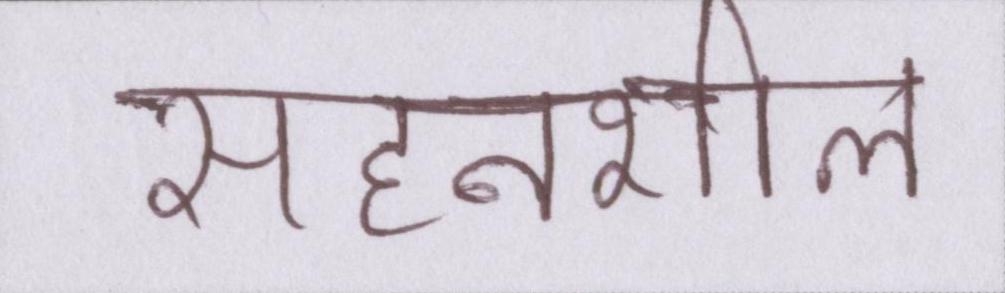 सहनशील